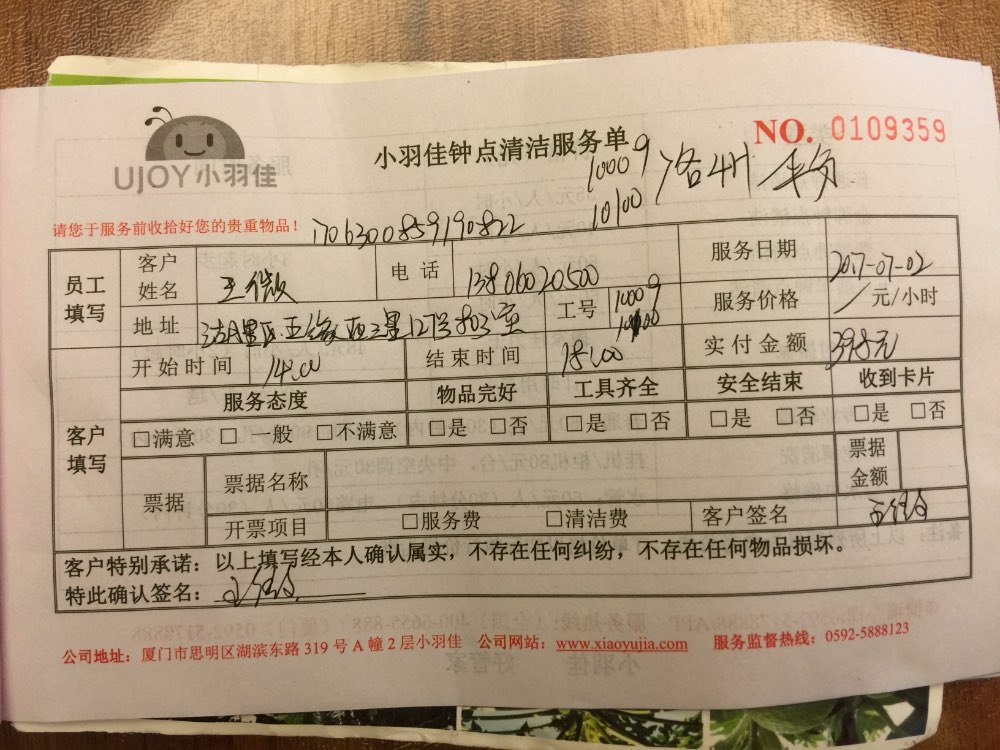 UJOY小羽佳
小羽佳钟点清洁服务单
NO. 0109359
10009
10100
请您于服务前收拾好您的贵重物品！
员工填写
客户姓名
电话 13806020500
服务日期 2017-07-02
地址
工号 10009
服务价格 / 元/小时
开始时间 14:00
结束时间 18:00
实付金额 398元
客户填写
服务态度 物品完好 工具齐全 安全结束 收到卡片
□满意 □一般 □不满意 □是 □否 □是 □否 □是 □否 □是 □否
票据 票据名称 票据金额
开票项目 □服务费 □清洁费 客户签名
客户特别承诺：以上填写经本人确认属实，不存在任何纠纷，不存在任何物品损坏。
特此确认签名：
公司地址：厦门市思明区湖滨东路 319 号 A 幢 2 层小羽佳 公司网站：www.xiaoyujia.com 服务监督热线：0592-5888123